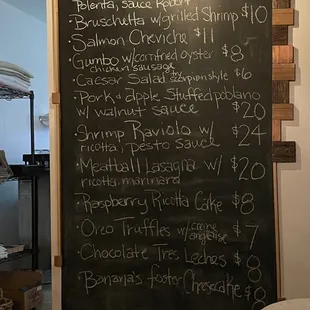 Polenta, sauce
Bruschetta w/grilled Shrimp $10
Salmon Cheviche $11
Gumbo w/cornfried oyster $8
chicken sausage
Caesar Salad $6
Pork & apple Stuffed poblano
w/ walnut sauce $20
Shrimp Raviolo w/ $24
ricotta, pesto sauce
Meatball Lasagna w/ $20
ricotta, marinara
Raspberry Ricotta Cake $8
Oreo Truffles w/ creme $7
anglaise
Chocolate Tres Leches $8
Banana's foster Cheesecake $8